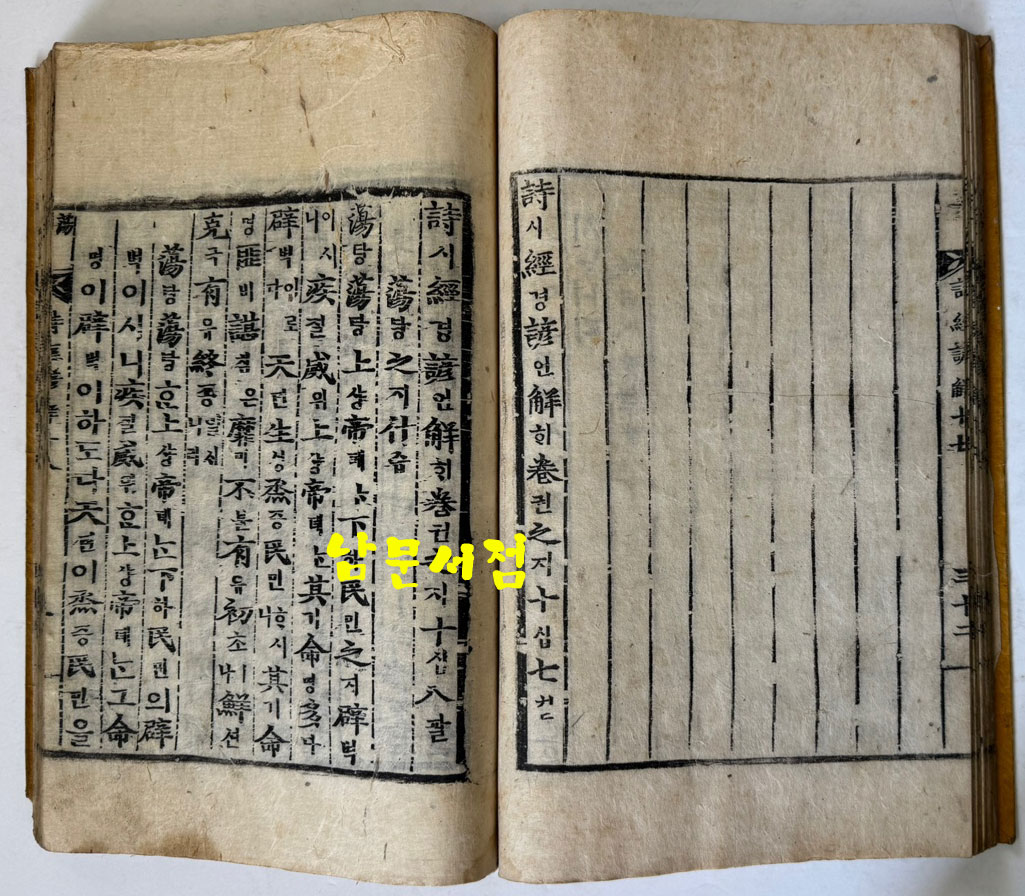 詩經諺解十七 三十二
詩시經경諺언解ᄒᆡ卷권之지十십七칠
詩시經경諺언解ᄒᆡ卷권之지十십八팔
蕩탕之지什습
蕩탕蕩탕上샹帝뎨ᄂᆞᆫ下하民민之지辟벽
이시니疾질威위上샹帝뎨ᄂᆞᆫ其기命명多다
辟벽이로다天텬生ᄉᆡᆼ烝증民민ᄒᆞ시나其기命
명匪비諶심은靡미不불有유初초ㅣ나鮮션
克극有유終죵
蕩탕蕩탕ᄒᆞᆫ上샹帝뎨ᄂᆞᆫ下하民민의辟
벽이시니疾질威위ᄒᆞᆫ上샹帝뎨ᄂᆞᆫ그命
명이辟벽이하도다天텬이烝증民민을
蕩
남문서점